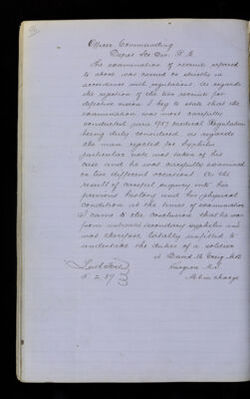 Officer Commanding
Depot Sec. Div. R. A.
The examination of recruits referred
to above was carried on strictly in
accordance with regulations. As regards
the rejection of the two recruits for
defective vision I beg to state that the
examination was most carefully
conducted, Medical Regulations
being duly considered. As regards
the man rejected for Syphilis
particular note was taken of his
case and he was carefully examined
on two different occasions. As the
result of careful enquiry into his
previous history and his physical
condition at the times of examination
I came to the conclusion that he was
from secondary syphilis and
was therefore totally unfitted to
undertake the duties of a soldier
David M. Craig M.B.
Surgeon
In charge
5. 2. 89